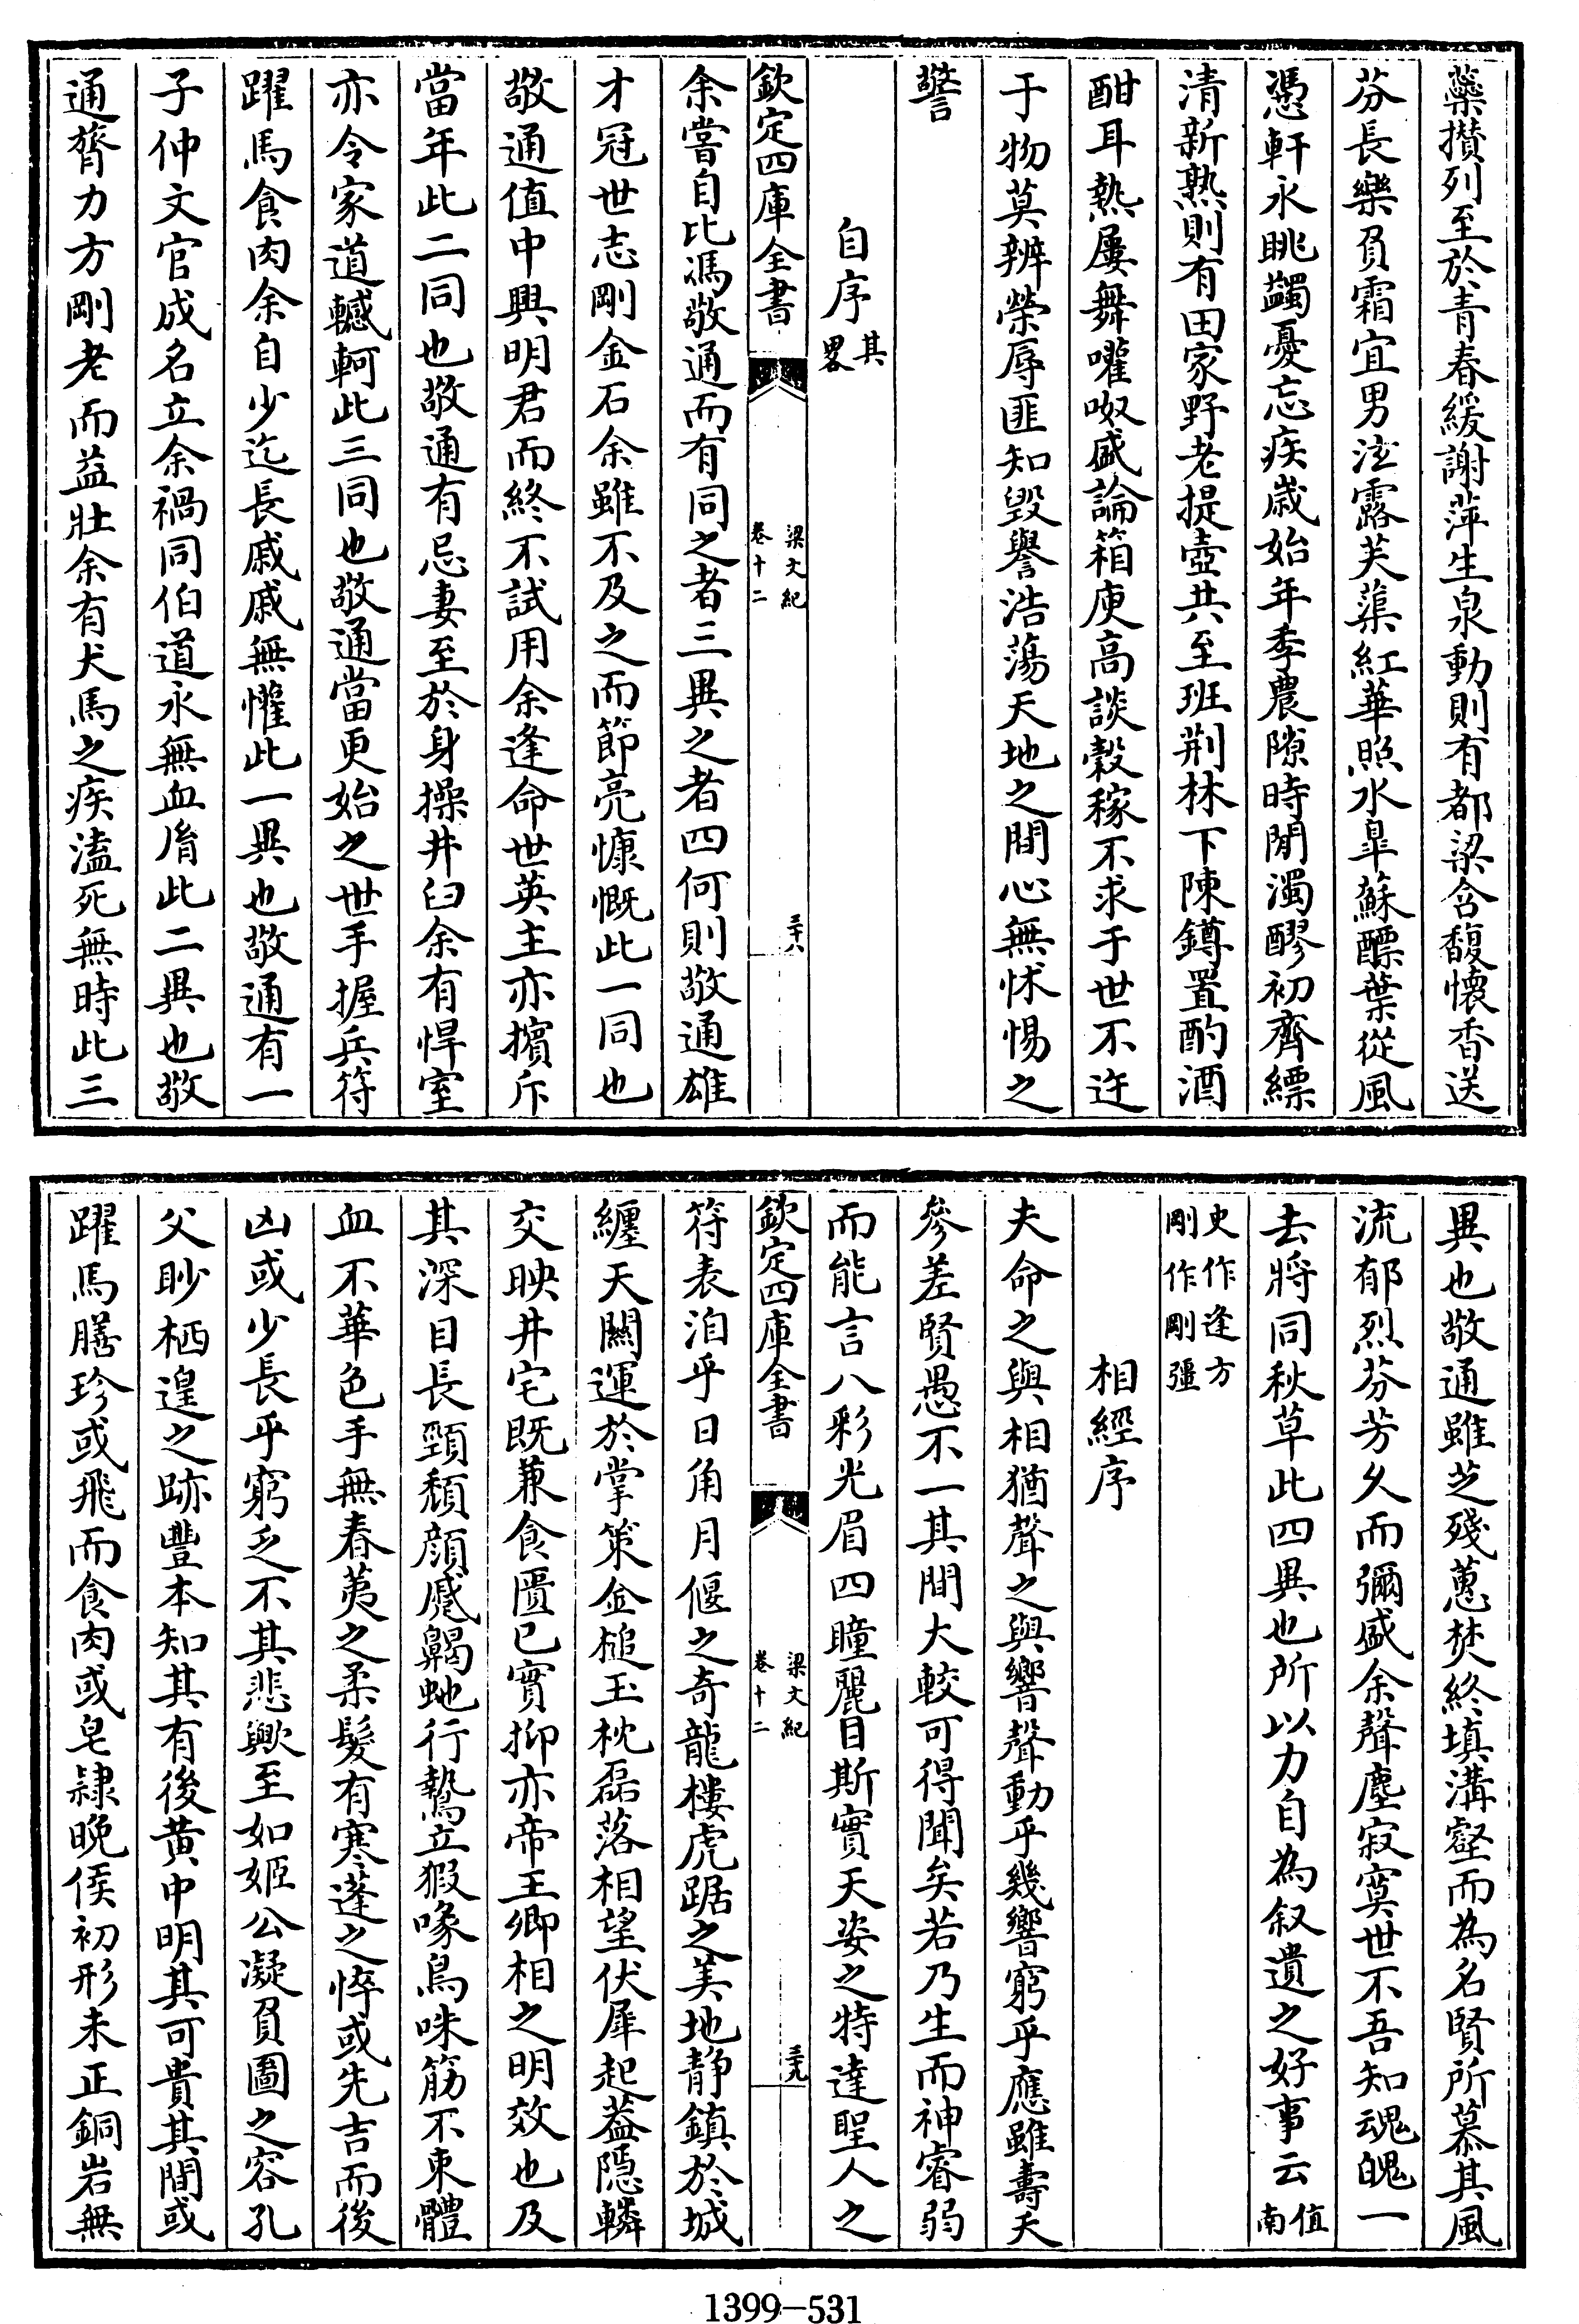 蘂攢列至於青春緩謝萍生泉動則有都梁含馥懷香送
芬長樂負霜宜男泫露芙蕖紅華照水臯蘇縹葉從風
憑軒永眺蠲憂忘疾歲始年季農隙時閒濁醪初齊縹
清新熟則有田家野老提壺共至班荆林下陳罇置酌酒
酣耳熱屢舞嚾呶盛論箱庾高談穀稼不求于世不迕
于物莫辨榮辱匪知毀譽浩蕩天地之間心無怵惕之
警
自序其畧
欽定四庫全書 梁文紀 卷十二 三十八
余嘗自比馮敬通而有同之者三異之者四何則敬通雄
才冠世志剛金石余雖不及之而節亮慷慨此一同也
敬通值中興明君而終不試用余逢命世英主亦擯斥
當年此二同也敬通有忌妻至於身操井臼余有悍室
亦令家道轗軻此三同也敬通當更始之世手握兵符
躍馬食肉余自少迄長戚戚無懽此一異也敬通有一
子仲文官成名立余禍同伯道永無血胤此二異也敬
通膂力方剛老而益壯余有犬馬之疾溘死無時此三
異也敬通雖芝殘蕙焚終填溝壑而為名賢所慕其風
流郁烈芬芳久而彌盛余聲塵寂寞世不吾知魂魄一
去將同秋草此四異也所以力自為叙遺之好事云值南
史作逢方剛作剛彊
相經序
夫命之與相猶聲之與響聲動乎幾響窮乎應雖壽夭
參差賢愚不一其間大較可得聞矣若乃生而神睿弱
而能言八彩光眉四瞳麗目斯實天姿之特達聖人之
欽定四庫全書 梁文紀 卷十二 三十九
符表洎乎日角月偃之奇龍樓虎踞之美地靜鎮於城
纏天闗運於掌策金槌玉枕磊落相望伏犀起葢隱轔
交映井宅既兼食匱已實抑亦帝王卿相之明效也及
其深目長頸頹顔蹙齃虵行鷙立猳喙鳥咮筋不束體
血不華色手無春荑之柔髮有寒蓬之悴或先吉而後
凶或少長乎窮乏不其悲歟至如姬公凝負圖之容孔
父眇栖遑之跡豐本知其有後黄中明其可貴其間或
躍馬膳珍或飛而食肉或皂隸晚侯初形未正銅岩無
1399-531